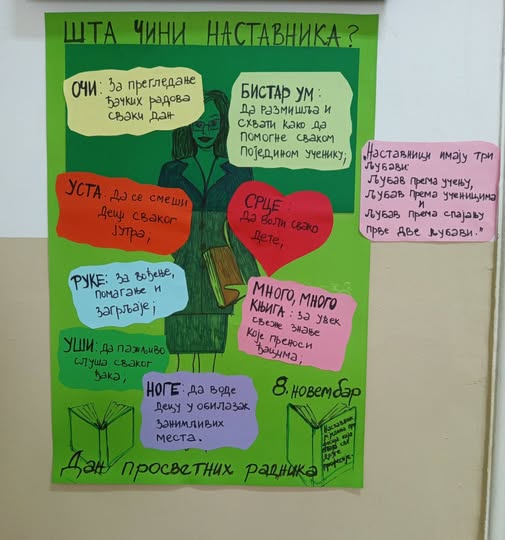 ШТА ЧИНИ НАСТАВНИКА?
ОЧИ: За прегледање
ђачких радова
сваки дан
БИСТАР УМ:
Да размишља и
схвати како да
помогне сваком
поједином ученику;
УСТА: Да се смеши
деци сваког
јутра;
СРЦЕ:
Да воли свако
дете;
РУКЕ: За вођење,
помагање и
загрљаје;
МНОГО, МНОГО
КЊИГА: За увек
свеже знање
које преноси
ђацима;
УШИ: Да пажљиво
слуша сваког
ђака;
НОГЕ: Да воде
децу у обилазак
занимљивих
места.
8. новембар
Дан просветних радника
Наставник
је једина про
фесија која
ствара све
друге
професије.
„Наставници имају три
љубави:
љубав према учењу,
љубав према ученицима
и
љубав према спајању
прве две љубави."